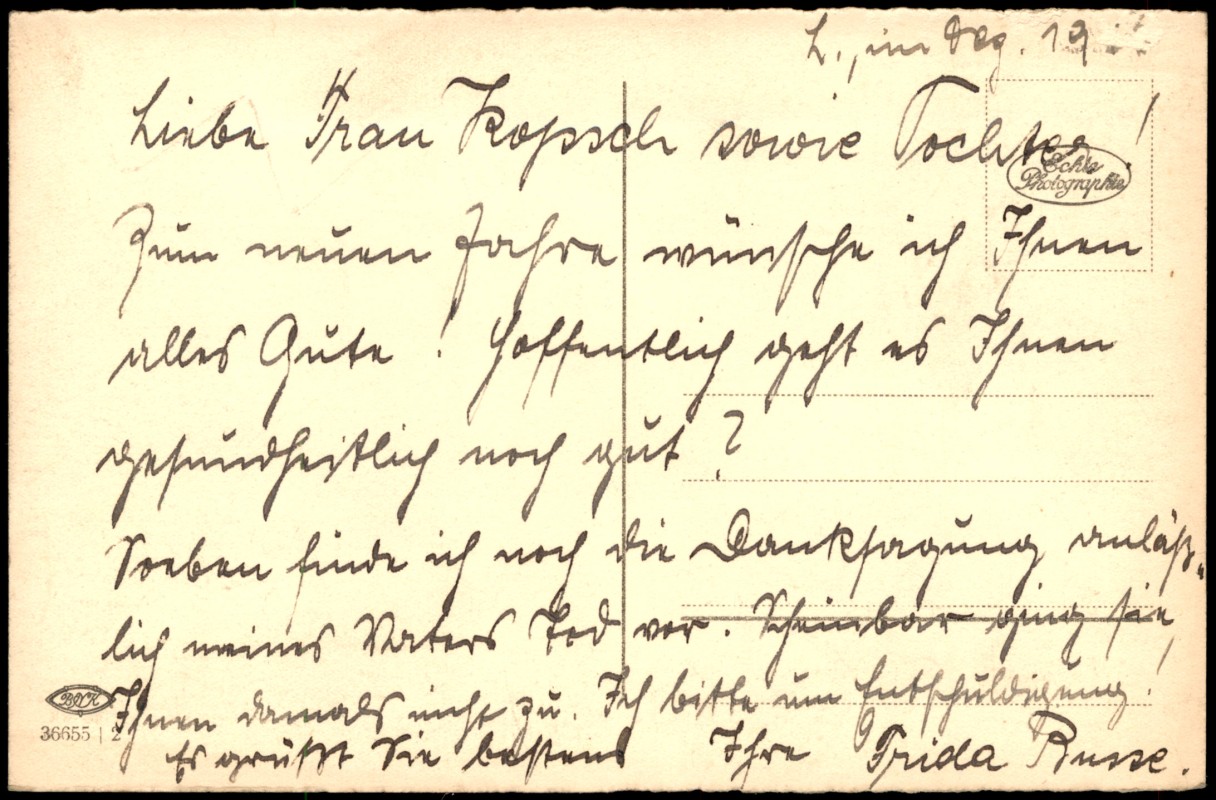 L., im Dez. 19
Liebe Frau Kopsch sowie Tochter!
Echte
Photographie
Zum neuen Jahre wünsche ich Ihnen
alles Gute! Hoffentlich geht es Ihnen
gesundheitlich noch gut?
Soeben finde ich noch die Danksagung anläß„
lich meines Vaters Tod vor. Scheinbar ging sie
Ihnen damals nicht zu. Ich bitte um Entschuldigung!
Es grüßt Sie bestens Ihre Frida Busse.
BNK
36655 | 2